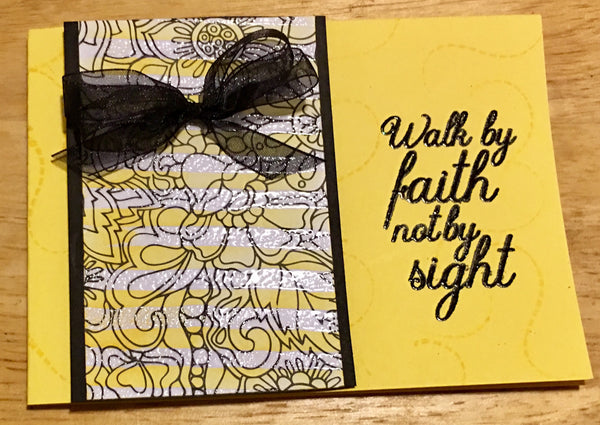 Walk by
faith
not by
sight